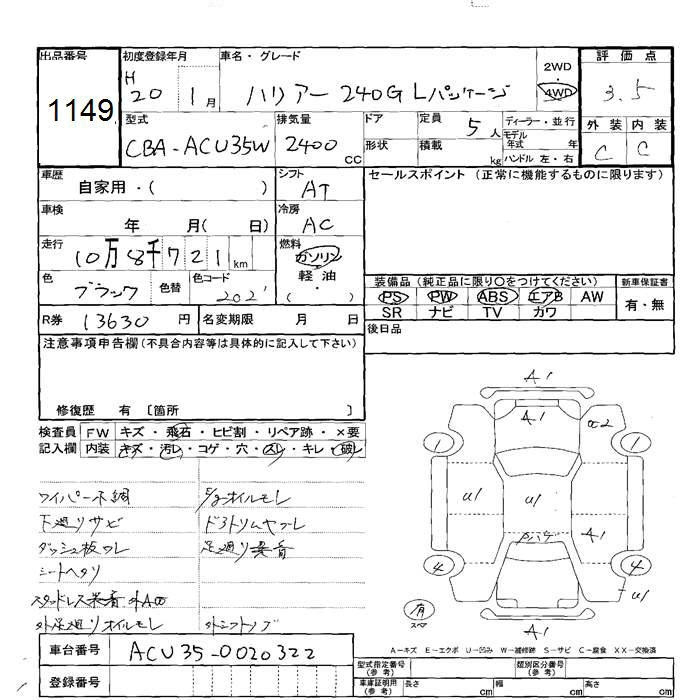 出品番号 初度登録年月 車名・グレード 評価点
1149 H20 1月 ハリアー 240G Lパッケージ 2WD・4WD 3.5
型式 排気量 ドア 定員 5人 ディーラー・並行 外装 内装
CBA-ACU35W 2400cc 形状 積載 kg モデル年式 年 C C
ハンドル 左・右
車歴 自家用・( ) シフト AT セールスポイント (正常に機能するものに限ります)
車検 年 月( 日) 冷房 AC
走行 10万8千721km 燃料 ガソリン・軽油・( )
色 ブラック 色替 色コード 202 装備品 (純正品に限り〇をつけてください) 新車保証書
PS PW ABS エアB AW 有・無
SR ナビ TV カワ
R券 13630円 名変期限 月 日 後日品
注意事項申告欄 (不具合内容等は具体的に記入して下さい)
修復歴 有 〔箇所 〕
検査員 FW キズ・飛石・ヒビ割・リペア跡・×要
記入欄 内装 キズ・汚レ・コゲ・穴・スレ・キレ・破レ
ワイパー不調
下廻りサビ
ダッシュ板ワレ
シートヘタリ
スタッドレス装着
外足廻りオイルモレ
E/gオイルモレ
足廻り異音
外シフトノブ
A1
A1
α2
1 1
U1 U1 A1
4 4
U1
有
A1
A-キズ E-エクボ U-凹み W-補修跡 S-サビ C-腐食 XX-交換済
車台番号 ACU35-0020322
登録番号
型式指定番号(参考) 類別区分番号(参考)
車庫証明用(参考) 長さ cm 幅 cm 高さ cm